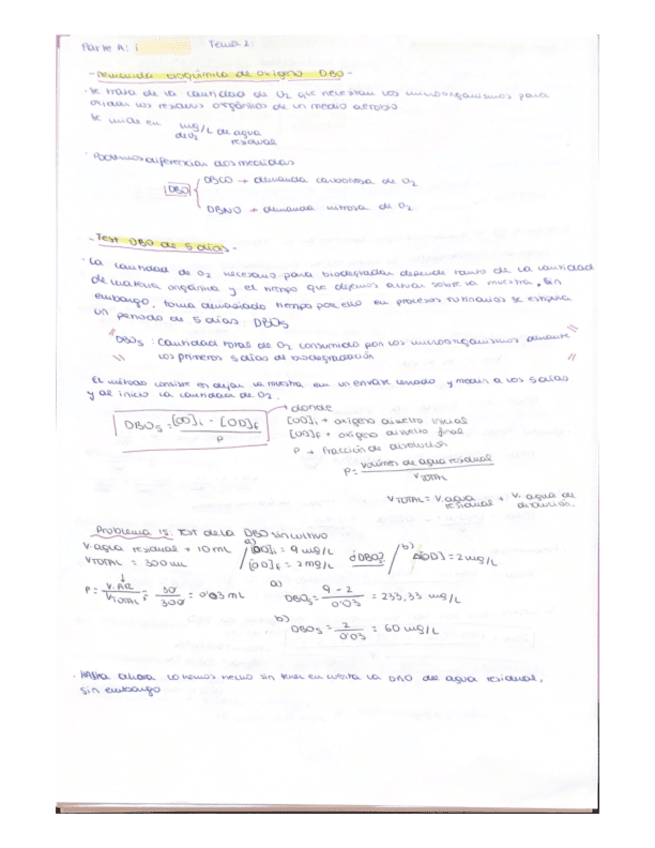 Parte A: i Tema 2:
- Demanda bioquímica de oxígeno DBO -
· Se trata de la cantidad de O2 que necesitan los microorganismos para
oxidar los residuos orgánicos de un medio aerobio
Se mide en mg/L de agua
de O2 residual
· Podemos diferenciar dos medidas
DBO
DBCO → demanda carbonosa de O2
DBNO → demanda nitrosa de O2
- Test DBO de 5 días -
· La cantidad de O2 necesario para biodegradar depende tanto de la cantidad
de materia orgánica y el tiempo que dejemos actuar sobre la muestra, sin
embargo, toma demasiado tiempo por ello en procesos rutinarios se estipula
un periodo de 5 días: DBO5
" DBO5: Cantidad total de O2 consumido por los microorganismos durante "
" los primeros 5 días de biodegradación "
El método consiste en dejar la muestra en un envase cerrado y medir a los 5 días
y al inicio la cantidad de O2.
DBO5 = [OD]i - [OD]f / P
→ donde
[OD]i → oxígeno disuelto inicial
[OD]f → oxígeno disuelto final
P → fracción de disolución
P = volumen de agua residual / V TOTAL
V TOTAL = V. agua residual + V. agua de dilución.
Problema 15: Test de la DBO sin cultivo
V. agua residual → 10 mL / a) [OD]i = 9 mg/L ¿DBO5? / b) Δ[OD] = 2 mg/L
V TOTAL = 300 mL / [OD]f = 2 mg/L
P = V. AR / V TOTAL = 10 / 300 = 0'03 mL
a) DBO5 = 9 - 2 / 0'03 = 233,33 mg/L
b) DBO5 = 2 / 0'03 = 60 mg/L
· Hasta ahora lo hemos hecho sin tener en cuenta la DBO de agua residual,
sin embargo